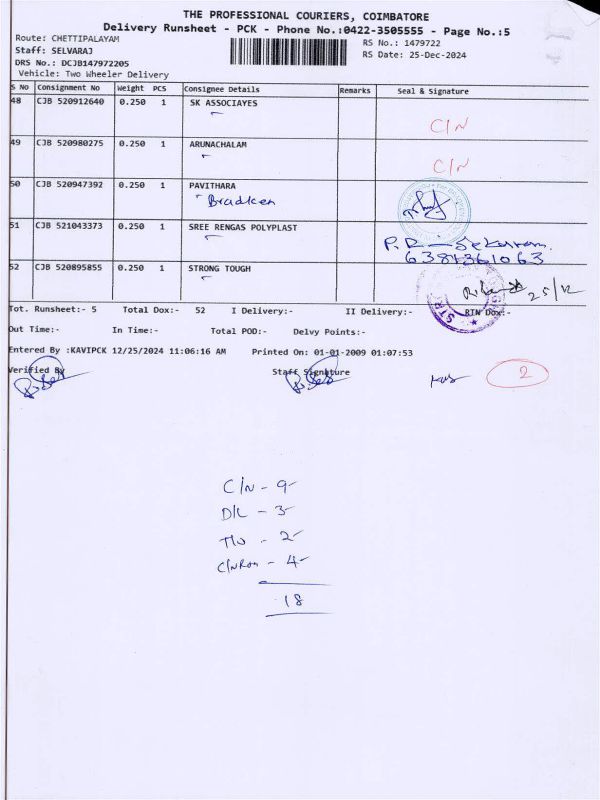 THE PROFESSIONAL COURIERS, COIMBATORE
Delivery Runsheet - PCK - Phone No.:0422-3505555 - Page No.:5
Route: CHETTIPALAYAM
RS No.: 1479722
Staff: SELVARAJ
RS Date: 25-Dec-2024
DRS No.: DCJB147972205
Vehicle: Two Wheeler Delivery
S No Consignment No Weight PCS Consignee Details Remarks Seal & Signature
48 CJB 520912640 0.250 1 SK ASSOCIAYES
C/N
49 CJB 520980275 0.250 1 ARUNACHALAM
C/N
50 CJB 520947392 0.250 1 PAVITHARA
Bradken
51 CJB 521043373 0.250 1 SREE RENGAS POLYPLAST
6381361063
52 CJB 520895855 0.250 1 STRONG TOUGH
25/12
Tot. Runsheet:- 5 Total Dox:- 52 I Delivery:- II Delivery:- RTN Dox:-
Out Time:- In Time:- Total POD:- Delvy Points:-
Entered By :KAVIPCK 12/25/2024 11:06:16 AM Printed On: 01-01-2009 01:07:53
Verified By Staff Signature
2
C/N - 9
D/L - 3
T/W - 2
C/N Ron - 4
18